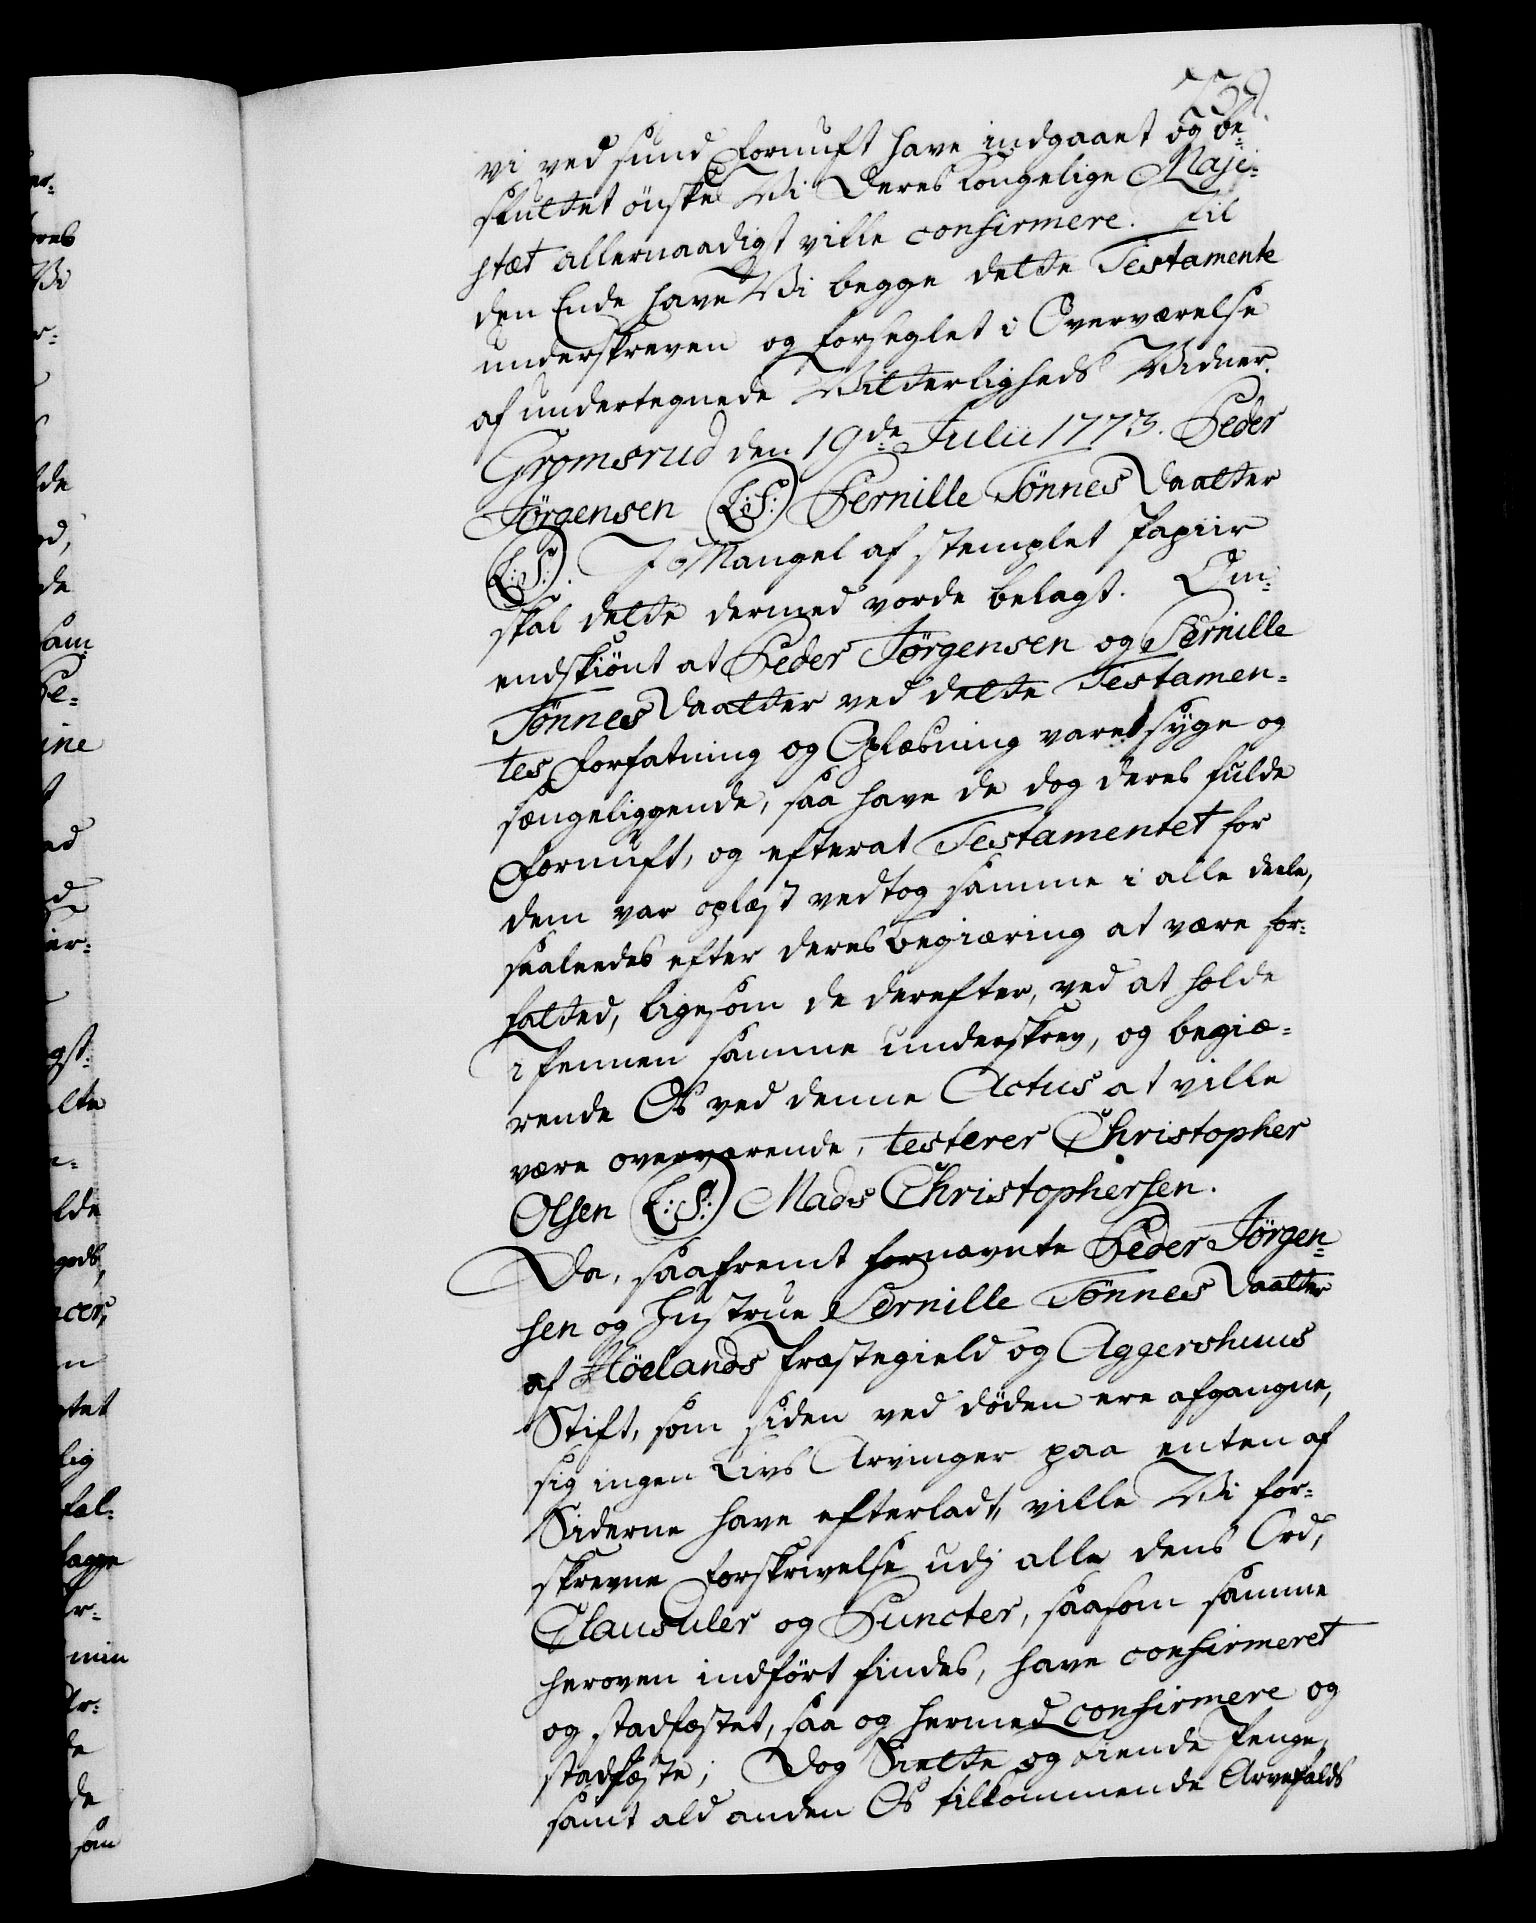 739.
vi ved sund Fornuft have indgaaet og be-
sluttet önske Vi Deres Kongelige Maje-
stæt allernaadigst ville confirmere. Til
den Ende have Vi begge dette Testamente
underskreven og forseglet i Overværelse
af undertegnede Vitterligheds Vidner.
Gromsrud den 19de Julii 1773. Peder
Jörgensen (L:S:) Pernille Tönnes Daatter
(L:S:). I Mangel af stemplet Papiir
skal dette dermed vorde belagt. Om-
endskiönt at Peder Jörgensen og Pernille
Tönnes Daatter ved dette Testamen-
tes Forfatning og Oplæsning vare syge og
sængeliggende, saa have de dog deres fulde
Fornuft, og efterat Testamentet for
dem var oplæst vedtog samme i alle deele,
saaledes efter deres begiæring at være for-
fatted, ligesom de derefter, ved at holde
i Pennen samme underskrev, og begiæ-
rende Os ved denne Actus at ville
være overværende, testerer Christopher
Olsen (L:S:) Mads Christophersen.
Da, saafremt fornævnte Peder Jörgen-
sen og Hustrue Pernille Tönnes Daatter
af Höelands Præstegield og Aggershuus
Stift, som siden ved döden ere afgangne,
sig ingen Livs Arvinger paa enten af
Siderne have efterladt, ville Vi for-
skrevne Forskrivelse udj alle dens Ord,
Clausuler og Puncter, saasom samme
heroven indfört findes, have confirmeret
og stadfæstet, saa og hermed confirmere og
stadfæste; Dog Siette og tiende Penge,
samt ald anden Os tilkommende Arvefalds